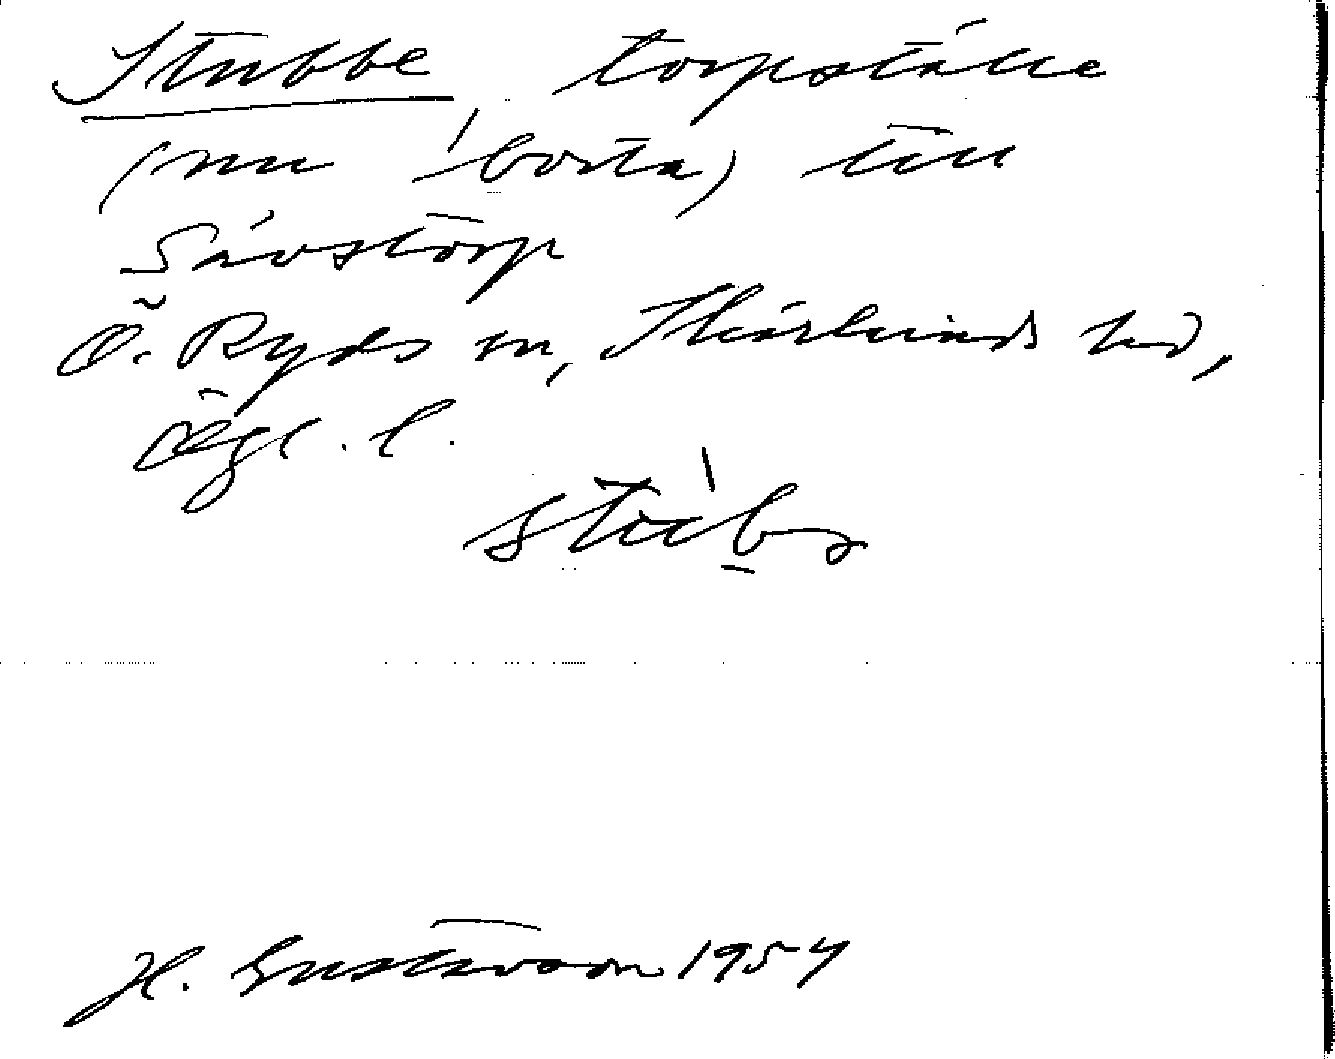 Stubbe, torpställe
(nu borta) till
Sävstorp
Ö. Ryds sn, Skärkinds hd,
Ögl. l.
H. Gustavson 1954